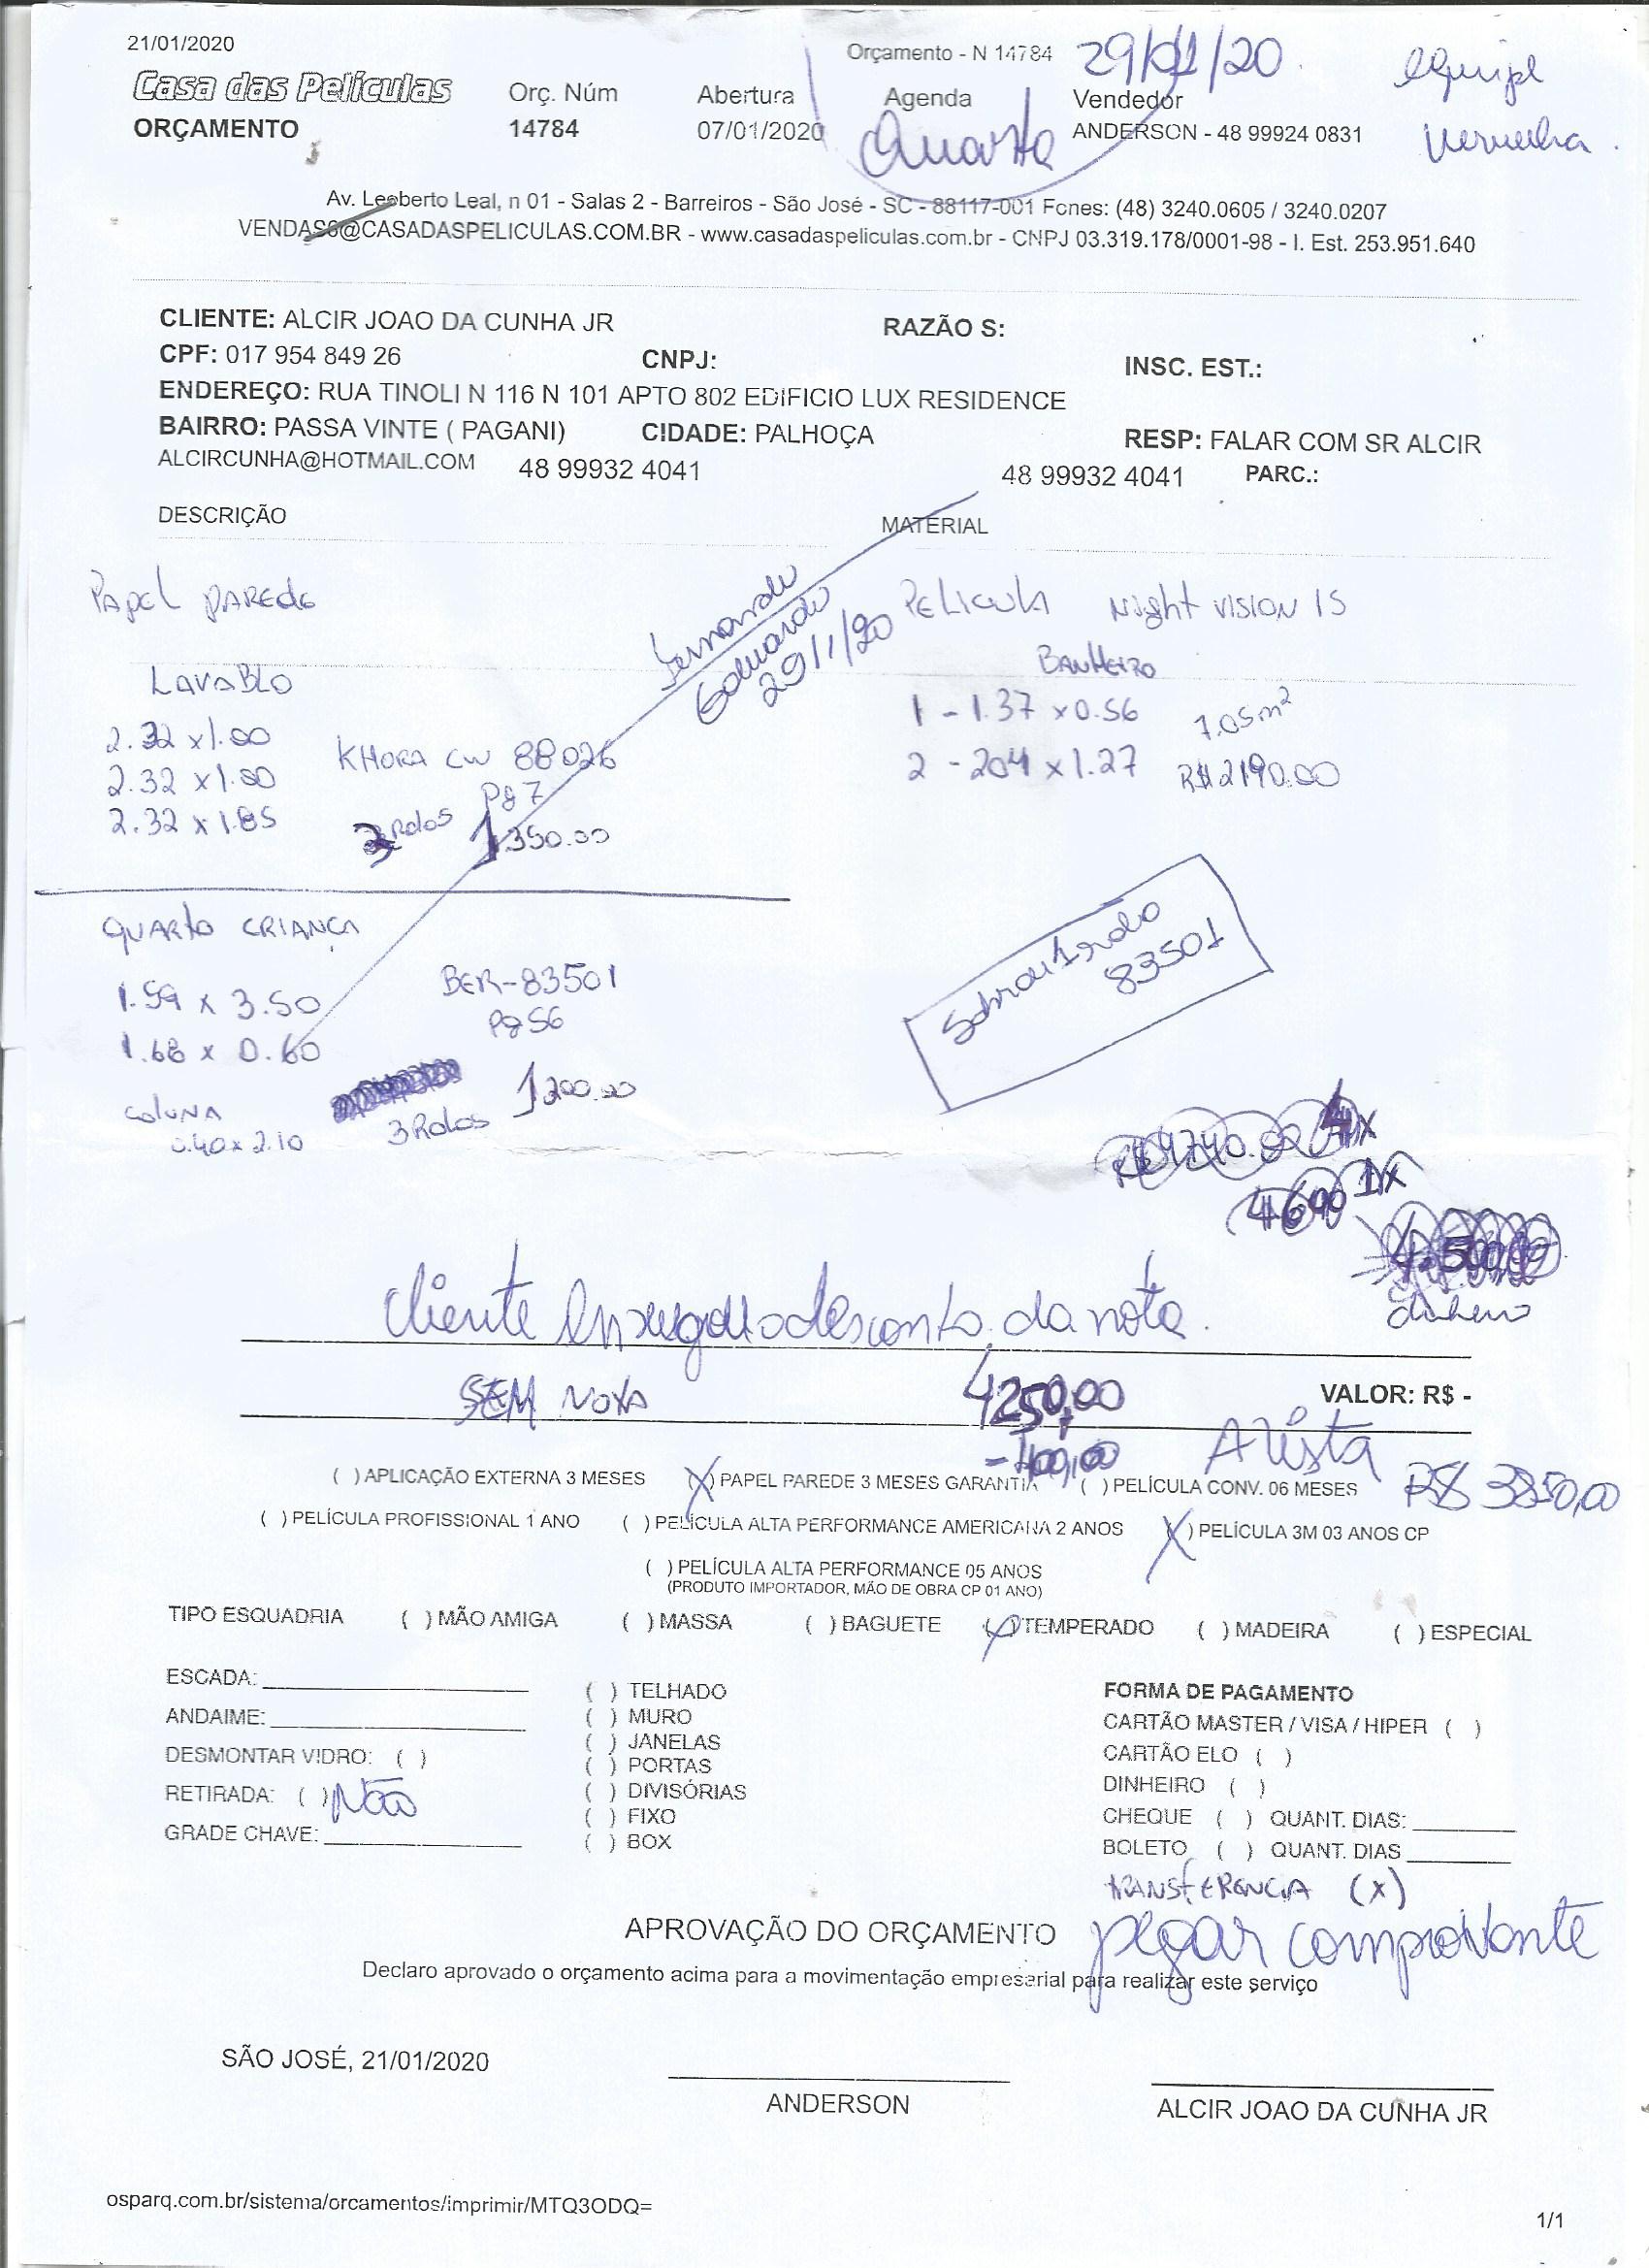 21/01/2020
Orçamento - N 14784
29/01/20.
equipe
vermelha.
Casa das Películas
ORÇAMENTO
Orç. Núm
14784
Abertura
07/01/2020
Agenda
Quarta
Vendedor
ANDERSON - 48 99924 0831
Av. Leoberto Leal, n 01 - Salas 2 - Barreiros - São José - SC - 88117-001 Fones: (48) 3240.0605 / 3240.0207
VENDAS6@CASADASPELICULAS.COM.BR - www.casadaspeliculas.com.br - CNPJ 03.319.178/0001-98 - I. Est. 253.951.640
CLIENTE: ALCIR JOAO DA CUNHA JR RAZÃO S:
CPF: 017 954 849 26 CNPJ: INSC. EST.:
ENDEREÇO: RUA TINOLI N 116 N 101 APTO 802 EDIFICIO LUX RESIDENCE
BAIRRO: PASSA VINTE ( PAGANI) CIDADE: PALHOÇA RESP: FALAR COM SR ALCIR
ALCIRCUNHA@HOTMAIL.COM 48 99932 4041 48 99932 4041 PARC.:
DESCRIÇÃO MATERIAL
Papel parede
Lavabo
2.32 x 1.00
2.32 x 1.00
2.32 x 1.85
KHORA CW 88026
Pg 7
3 Rolos 1350.00
Fernando
Eduardo
29/1/20
Película Night vision 15
Banheiro
1 - 1.37 x 0.56
2 - 204 x 1.27
7.05m²
R$ 2190.00
QUARTO CRIANÇA
1.59 x 3.50
1.68 x 0.60
BER-83501
Pg 56
coluna
0.40 x 2.10
3 Rolos 1200.00
Sobrou 1 rolo
83501
R$ 4740.00 4x
4600 1x
4.500,00
dinheiro
cliente desconto da nota.
SEM NOTA 4250,00 VALOR: R$ -
-400,00 A Vista
R$ 3850,00
( ) APLICAÇÃO EXTERNA 3 MESES (X) PAPEL PAREDE 3 MESES GARANTIA ( ) PELÍCULA CONV. 06 MESES
( ) PELÍCULA PROFISSIONAL 1 ANO ( ) PELÍCULA ALTA PERFORMANCE AMERICANA 2 ANOS (X) PELÍCULA 3M 03 ANOS CP
( ) PELÍCULA ALTA PERFORMANCE 05 ANOS
(PRODUTO IMPORTADOR, MÃO DE OBRA CP 01 ANO)
TIPO ESQUADRIA ( ) MÃO AMIGA ( ) MASSA ( ) BAGUETE (X) TEMPERADO ( ) MADEIRA ( ) ESPECIAL
ESCADA:
ANDAIME:
DESMONTAR VIDRO: ( )
RETIRADA: ( ) Não
GRADE CHAVE:
( ) TELHADO
( ) MURO
( ) JANELAS
( ) PORTAS
( ) DIVISÓRIAS
( ) FIXO
( ) BOX
FORMA DE PAGAMENTO
CARTÃO MASTER / VISA / HIPER ( )
CARTÃO ELO ( )
DINHEIRO ( )
CHEQUE ( ) QUANT. DIAS:
BOLETO ( ) QUANT. DIAS
TRANSFERENCIA (X)
pegar comprovante
APROVAÇÃO DO ORÇAMENTO
Declaro aprovado o orçamento acima para a movimentação empresarial para realizar este serviço
SÃO JOSÉ, 21/01/2020
ANDERSON
ALCIR JOAO DA CUNHA JR
osparq.com.br/sistema/orcamentos/imprimir/MTQ3ODQ=
1/1